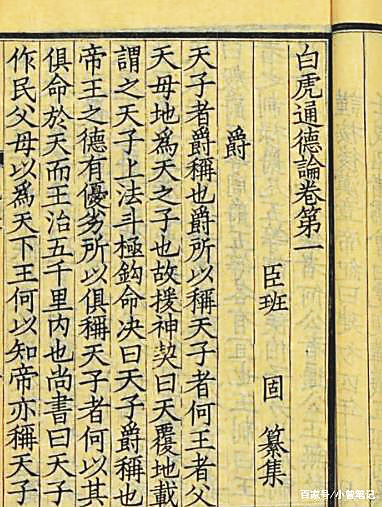 白虎通德論卷第一
臣班固纂集
爵
天子者爵稱也爵所以稱天子者何王者父
天母地爲天之子也故援神契曰天覆地載
謂之天子上法斗極鈎命决曰天子爵稱也
帝王之德有優劣所以俱稱天子者何以其
俱命於天而王治五千里内也尚書曰天子
作民父母以爲天下王何以知帝亦稱天子
百家号/小曾笔记